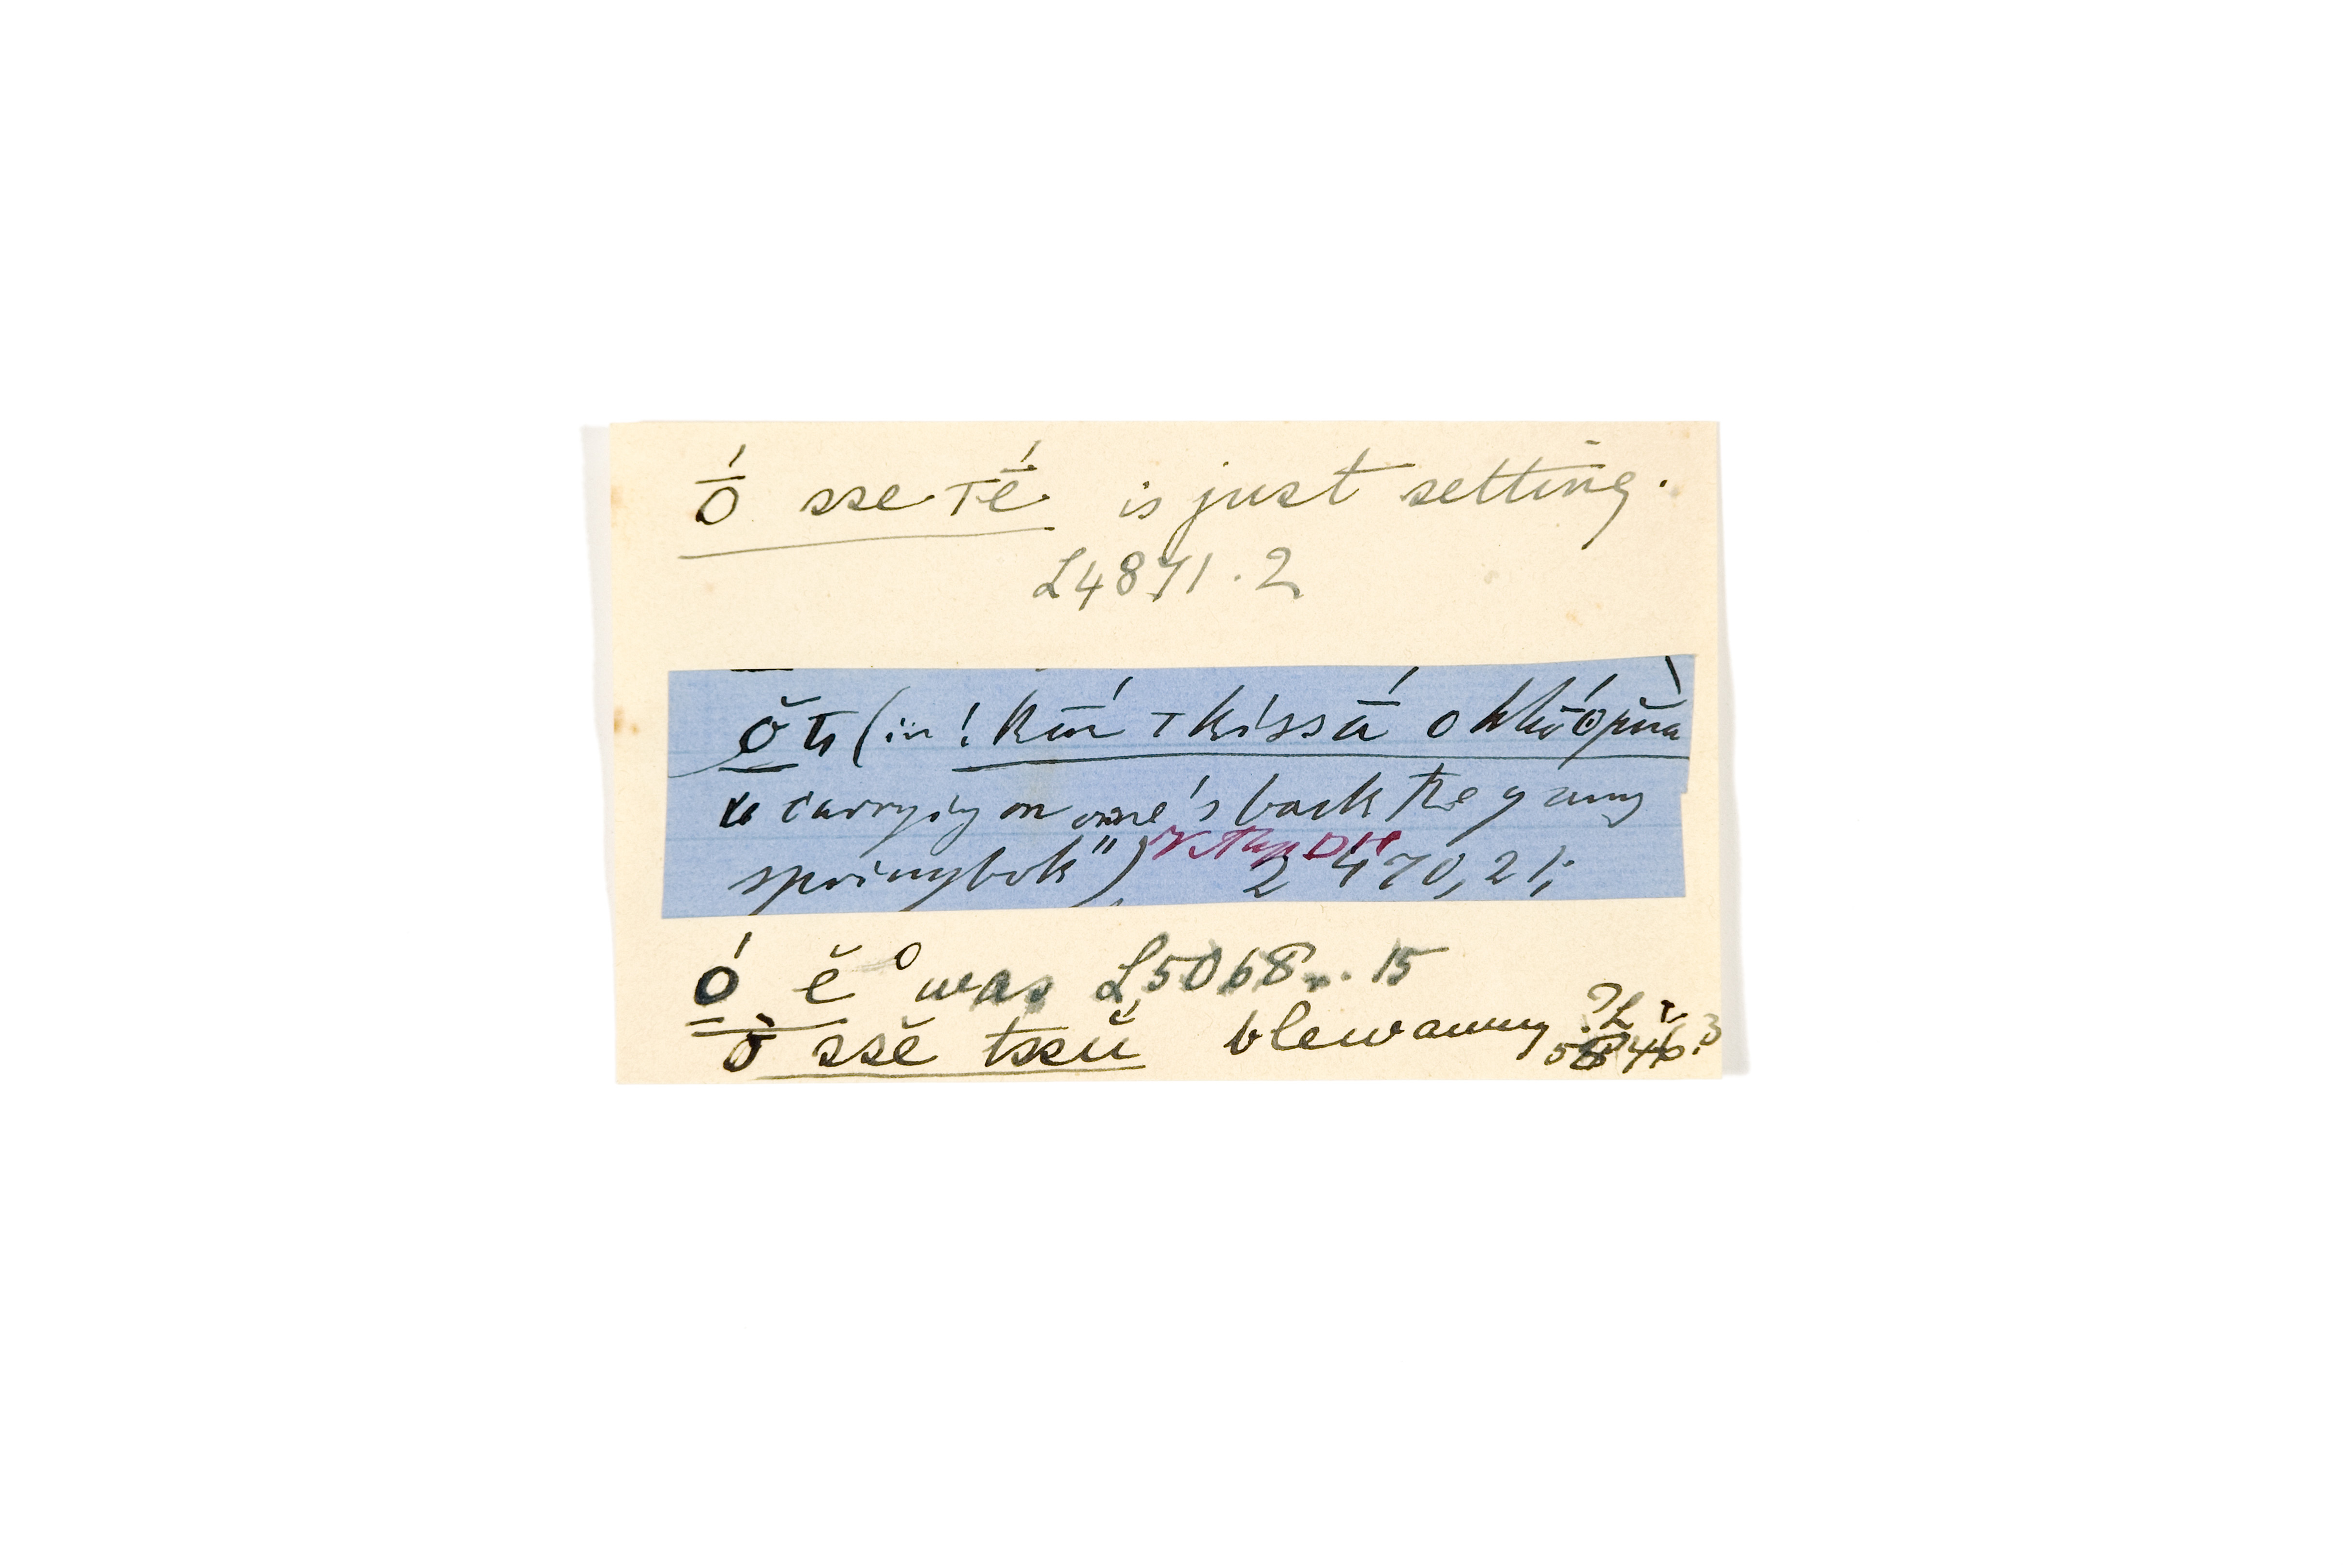 ṓ sse ⊤ḗ is just setting.
L4871.2
ŏ ts (in !kūń ⊤kíssā́
to carrying on one's back the young
springbok") 2 470, 21;
ó ĕ° was L5068. 15
ŏ̄ ssĕ tssŭ́ blew away ?L
5846.3